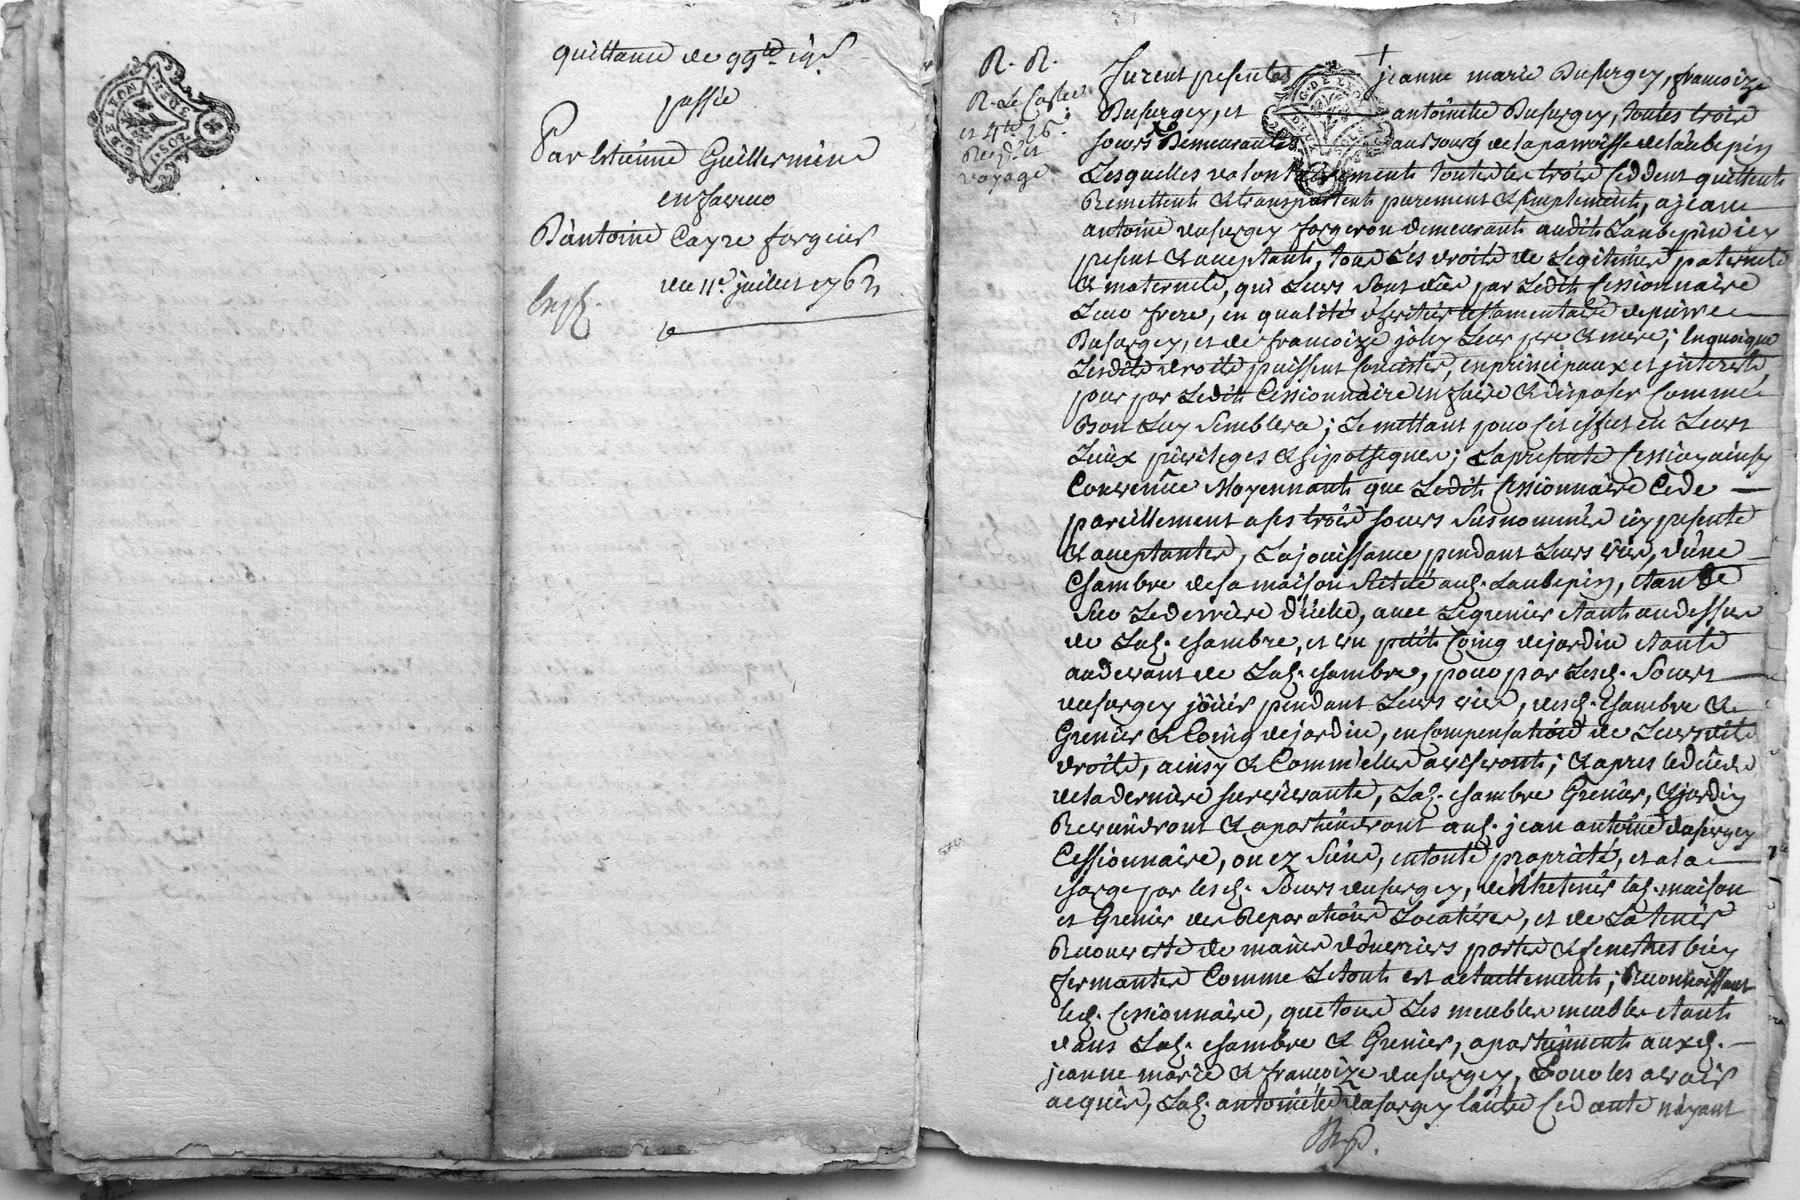 quittance de 99lt 19s
passée
Par Etienne Guillermin
en faveur
D'antoine Cayre forgeur
du 11e juillet 1762
G. DE LYON
R. R.
Furent presentes jeanne marie Dusurgey, francoize
Dusurgey, et antoinette Dusurgey, toutes trois
soeurs Demeurantes au Bourg de la parroisse de Laubepin
Lesquelles volontairement toutes les trois ceddent quittent
Remettent & transportent purement & simplement, a jean
antoine dusurgey forgeron demeurant audit Laubepin icy
present & acceptant, tous Les droits de Legitimes paternels
& maternels, qui Leurs sont dûs par Ledit Cessionnaire
Leur frere, en qualité d'heritier testamentaire de pierre
Dusurgey, et de francoize joly Leur pere & mere; En quoique
Lesdits droits puissent consister, en principaux et interests
pour par Ledit Cessionnaire en faire & disposer Comme
Bon Luy Semblera; Le mettant pour cet effet en Leurs
Lieux privileges & hipotheques; La presente Cession ainsy
Convenue Moyennant que Ledit Cessionnaire Cede
pareillement a ses trois soeurs susnommées icy presente
& acceptantes, La jouissance pendant Leurs vies, d'une
Chambre de sa maison scituée aud. Laubepin, etant
sur Le derriere d'icelle, avec Le grenier etant au dessus
de Lad. chambre, et un petit Coing de jardin etant
au devant de Lad. chambre, pour par Lesd. Soeurs
dusurgey jöuir pendant Leurs vies, desd. chambre &
Grenier & Coing de jardin, en Compensation de Leursdits
droits, ainsy & Comm'elles aviseront; & apres le décès
de la derniere survivante, Lad. chambre Grenier, & jardin
Reviendront & apartiendront aud. jean antoine dusurgey
Cessionnaire, ou ez siens, en toute propriété, et a la
charge par lesd. Soeurs dusurgey, d'entretenir lad. maison
et Grenier des Reparations Locatives, et de La tenir
Recouverte de mains d'ouvriers portes & fenestres bien
fermantes Comme Le tout est actuellement; Reconnoissant
led. Cessionnaire, que tous Les meubles meublés etant
dans Lad. chambre & Grenier, apartiennent auxd.
jeanne marie & francoize dusurgey, Pour les avoir
acquis, Lad. antoinette dusurgey l'autre Cedante n'ayant